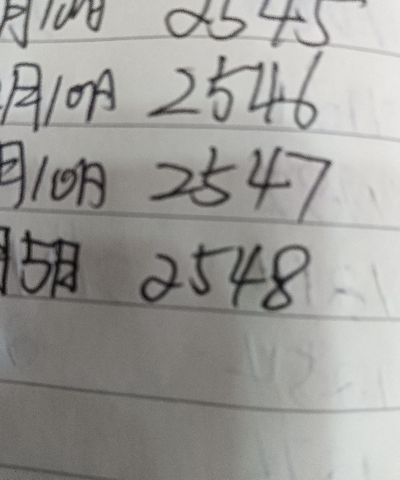 月10日 2545
月10日 2546
月10日 2547
月5日 2548